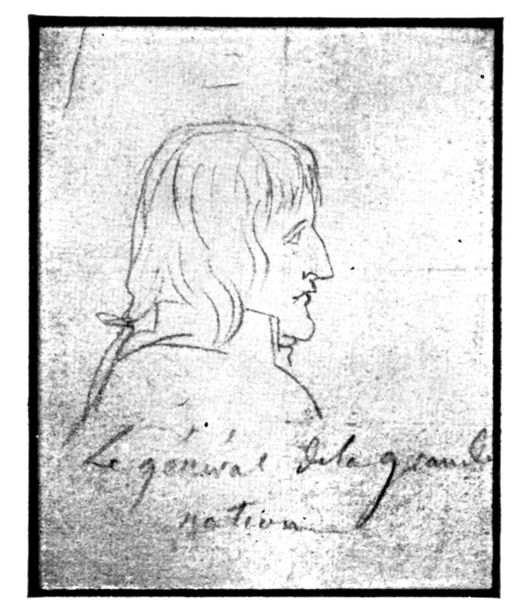 Le général de la grande
nation